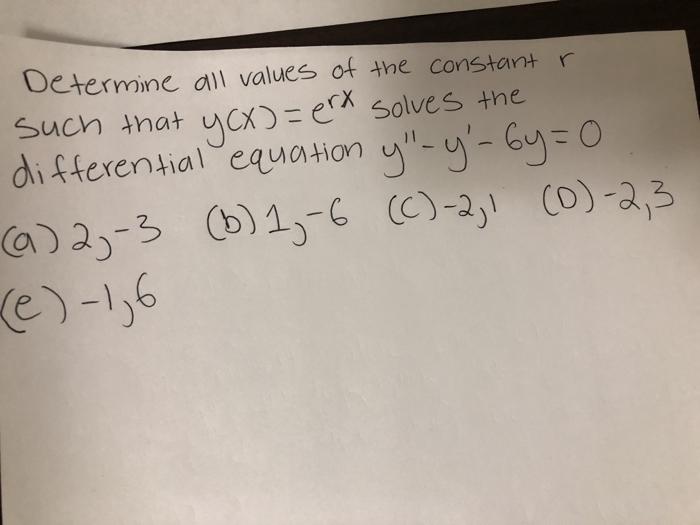 Determine all values of the constant r
such that y(x) = e^rx solves the
differential equation y'' - y' - 6y = 0
(a) 2, -3 (b) 1, -6 (C) -2, 1 (D) -2, 3
(e) -1, 6